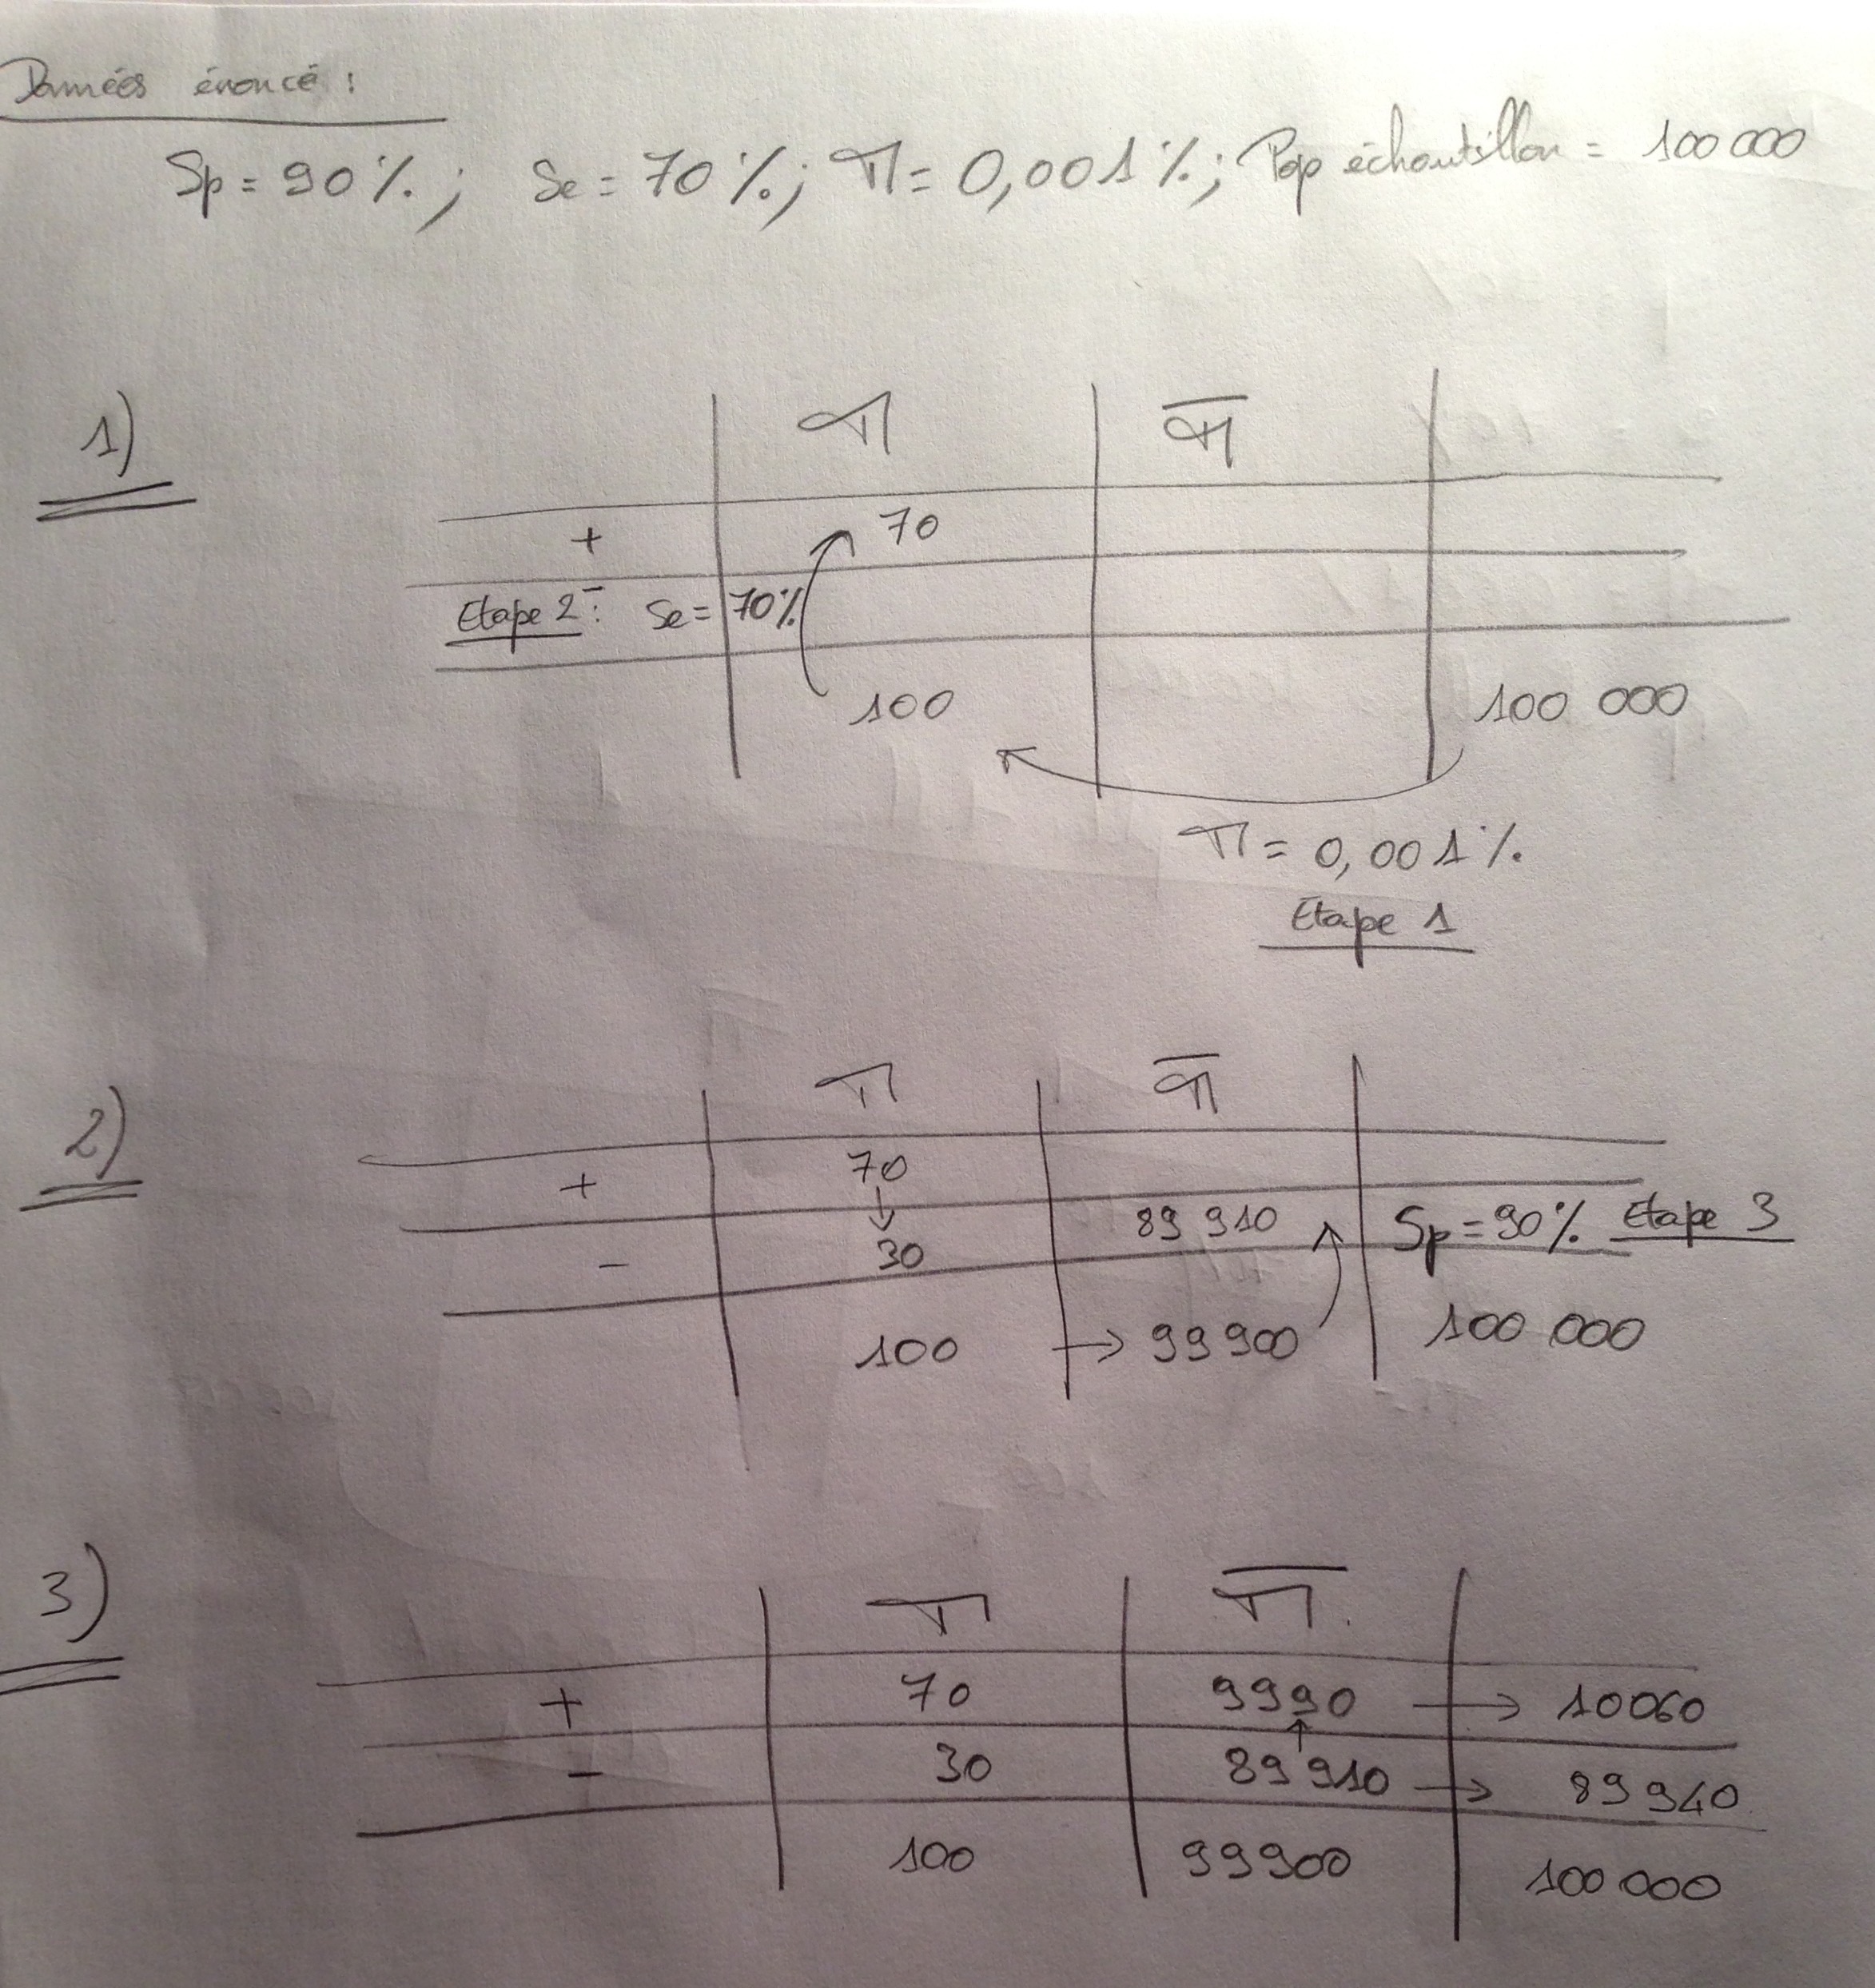 Données énoncé :
Sp = 90 % ; Se = 70 % ; π = 0,001 % ; Pop échantillon = 100 000
1)
π π̅
+ 70
-
Etape 2 : Se = 70 %
100 100 000
π = 0,001 %
Etape 1
2)
π π̅
+ 70
89 910 Sp = 90 % Etape 3
- 30
100 → 99 900 100 000
3)
π π̅
+ 70 9990 → 10060
- 30 89 910 → 89 940
100 99900 100 000